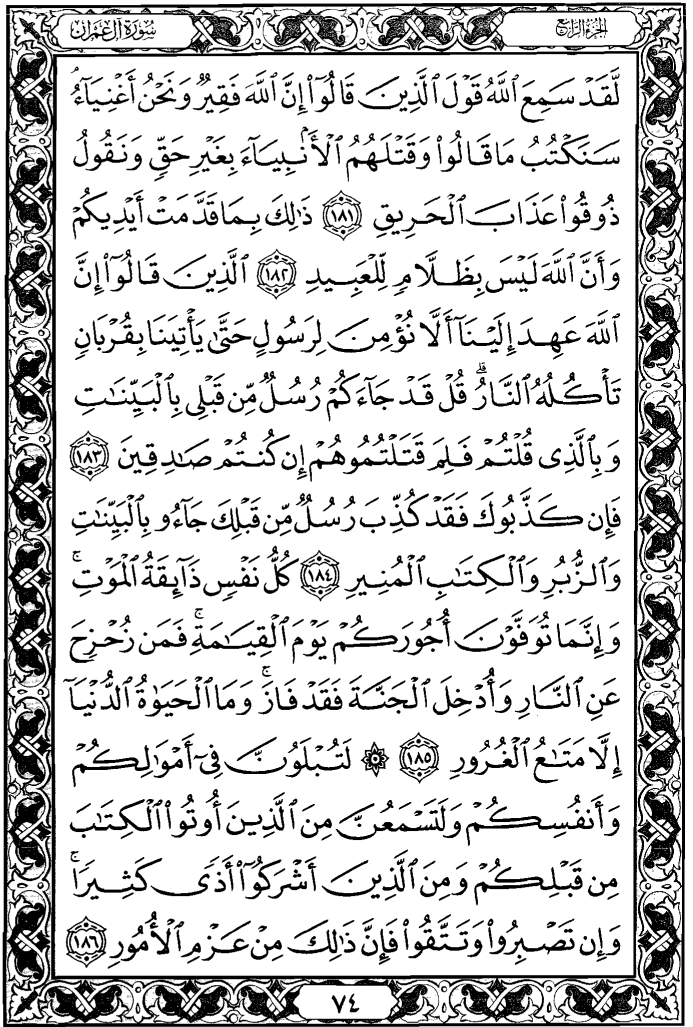 الجزء الرابع
سورة آل عمران
لَّقَدْ سَمِعَ ٱللَّهُ قَوْلَ ٱلَّذِينَ قَالُوٓا۟ إِنَّ ٱللَّهَ فَقِيرٌ وَنَحْنُ أَغْنِيَآءُ ۘ
سَنَكْتُبُ مَا قَالُوا۟ وَقَتْلَهُمُ ٱلْأَنۢبِيَآءَ بِغَيْرِ حَقٍّ وَنَقُولُ
ذُوقُوا۟ عَذَابَ ٱلْحَرِيقِ ١٨١ ذَٰلِكَ بِمَا قَدَّمَتْ أَيْدِيكُمْ
وَأَنَّ ٱللَّهَ لَيْسَ بِظَلَّامٍ لِّلْعَبِيدِ ١٨٢ ٱلَّذِينَ قَالُوٓا۟ إِنَّ
ٱللَّهَ عَهِدَ إِلَيْنَآ أَلَّا نُؤْمِنَ لِرَسُولٍ حَتَّىٰ يَأْتِيَنَا بِقُرْبَانٍ
تَأْكُلُهُ ٱلنَّارُ ۗ قُلْ قَدْ جَآءَكُمْ رُسُلٌ مِّن قَبْلِى بِٱلْبَيِّنَٰتِ
وَبِٱلَّذِى قُلْتُمْ فَلِمَ قَتَلْتُمُوهُمْ إِن كُنتُمْ صَٰدِقِينَ ١٨٣
فَإِن كَذَّبُوكَ فَقَدْ كُذِّبَ رُسُلٌ مِّن قَبْلِكَ جَآءُو بِٱلْبَيِّنَٰتِ
وَٱلزُّبُرِ وَٱلْكِتَٰبِ ٱلْمُنِيرِ ١٨٤ كُلُّ نَفْسٍ ذَآئِقَةُ ٱلْمَوْتِ ۗ
وَإِنَّمَا تُوَفَّوْنَ أُجُورَكُمْ يَوْمَ ٱلْقِيَٰمَةِ ۖ فَمَن زُحْزِحَ
عَنِ ٱلنَّارِ وَأُدْخِلَ ٱلْجَنَّةَ فَقَدْ فَازَ ۗ وَمَا ٱلْحَيَوٰةُ ٱلدُّنْيَآ
إِلَّا مَتَٰعُ ٱلْغُرُورِ ١٨٥ ۞ لَتُبْلَوُنَّ فِىٓ أَمْوَٰلِكُمْ
وَأَنفُسِكُمْ وَلَتَسْمَعُنَّ مِنَ ٱلَّذِينَ أُوتُوا۟ ٱلْكِتَٰبَ
مِن قَبْلِكُمْ وَمِنَ ٱلَّذِينَ أَشْرَكُوٓا۟ أَذًى كَثِيرًا ۚ
وَإِن تَصْبِرُوا۟ وَتَتَّقُوا۟ فَإِنَّ ذَٰلِكَ مِنْ عَزْمِ ٱلْأُمُورِ ١٨٦
٧٤